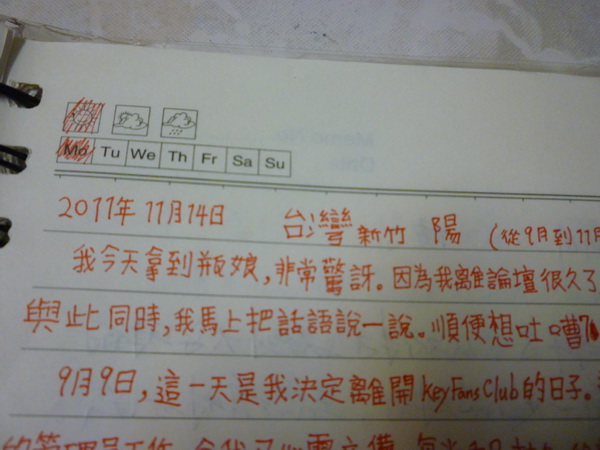 Mo Tu We Th Fr Sa Su
2011年 11月14日 台灣 新竹 陽 (從9月到11月
我今天拿到瓶娘,非常驚訝。因為我離論壇很久了
與此同時,我馬上把話語說一說。順便想吐嘈
9月9日,這一天是我決定離開 KeyFansClub的日子。